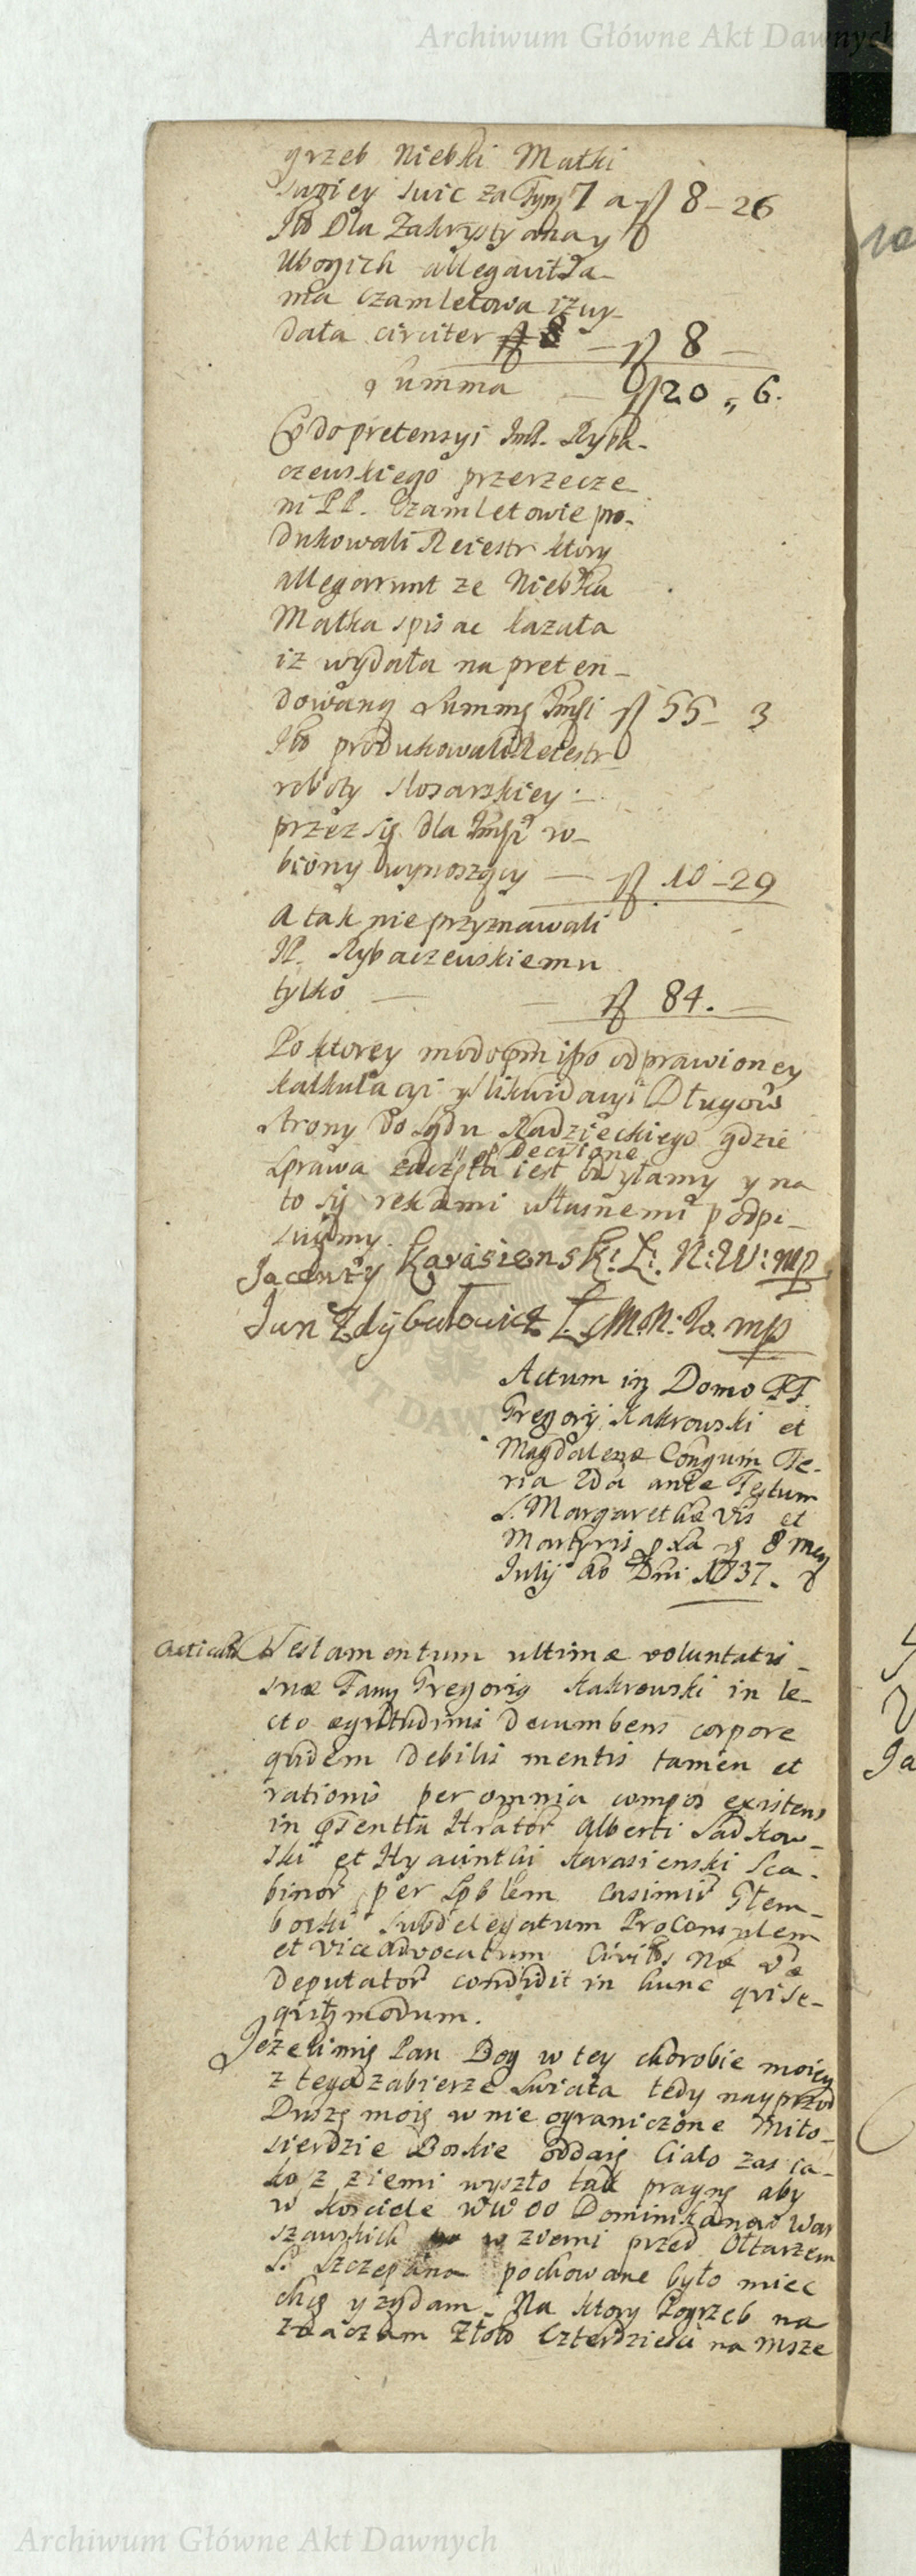 Archiwum Główne Akt Dawnych
grzeb Niebki Matki
swoiey swic za Tynf 7 a fl 8 – 26
Ito Dla Zakrystyana y
Ubogich allegavit Ja-
ma Czamletowa iz wy-
data circiter fl 8 — fl 8 —
Summa — fl 20 „ 6.
Co do pretensyi Imć. Ryba-
czewskiego przerzecze
ni PP. Czamletowie pro-
dukowali Reiestr ktory
allegarunt ze Niebka
Matka spisac kazała
iz wydała na preten-
dowaną Summę fl 55 – 3
Ito produkowali Reiestr
roboty slosarskiey –
przez się dla ro-
biony wynoszący — fl 10 – 29
A tak nie przyznawali
P. Rybaczewskiemu
tylko — — fl 84. —
Po ktorey modo pmisso odprawioney
kalkulacyi y likwidacyi Długow
strony do Sądu Radzieckiego gdzie
decisione
Sprawa zaczęta iest odsyłamy y na
to się rękami własnemi podpi-
suiemy.
Jacenty Karasienski Ł: N: W: mp
Jan Zdybałowicz Ł M. N: W. mp
Actum in Domo FF.
Gregorij Kakrowski et
Magdalenæ Congum Fe-
ria 2da ante Festum
S. Margarethæ Vis et
Martyris 8 men
Julij Ao Dni 1737.
Testamentum ultimæ voluntatis
suæ Fams Gregorig Kakrowski in le-
cto ægritudinis decumbens corpore
quidem debilis mentis tamen et
rationis per omnia compos existens
in pntia Hrator Alberti Sadkow-
ski et Hyacinthi Karasienski Sca-
binor per Spblem Casimir Głem-
bocki Subdelegatum ProConsulem
et Viceadvocatum Civits Næ Væ
deputator condidit in hunc qui se-
quitz modum.
Jezeli mię Pan Bog w tey chorobie moiey
z tego zabierze swiata tedy nayprzod
Duszę moię w nie ograniczone Miło-
sierdzie Boskie oddaię Ciało zas ia-
ko z ziemi wyszło tak pragnę aby
w Kosciele WW OO Dominikanow War
szawskich w ziemi przed Ołtarzem
S. Szczepana pochowane było miec
chcę y ządam. Na ktory Pogrzeb na
znaczam Złoto Czterdziesci na Msze
Archiwum Główne Akt Dawnych